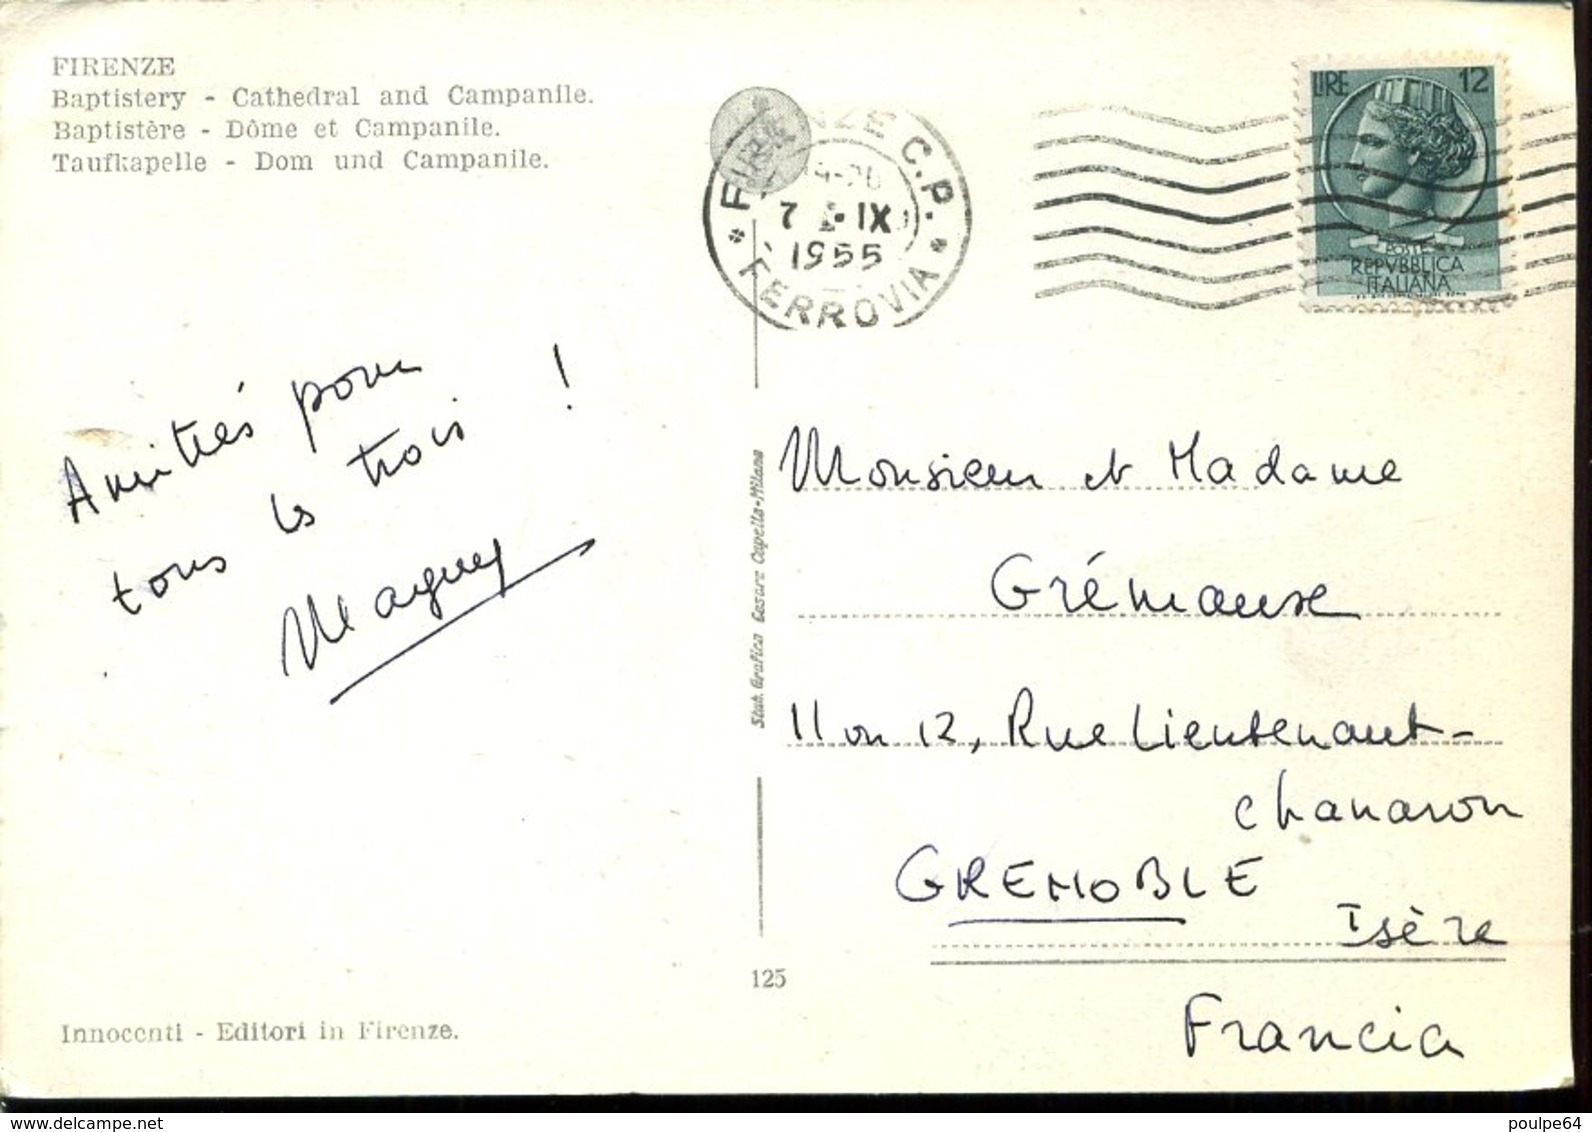 FIRENZE
Baptistery - Cathedral and Campanile.
Baptistère - Dôme et Campanile.
Taufkapelle - Dom und Campanile.
FIRENZE C.P.
7 - IX
1955
FERROVIA
LIRE 12
POSTE
REPVBBLICA
ITALIANA
Amitiés pour
tous les trois !
Maguy
Stab. Grafico Cesare Capello - Milano
Monsieur et Madame
Grémause
11 ou 12, Rue Lieutenant-
Chanaron
GRENOBLE
Isère
Francia
125
Innocenti - Editori in Firenze.
poulpe64